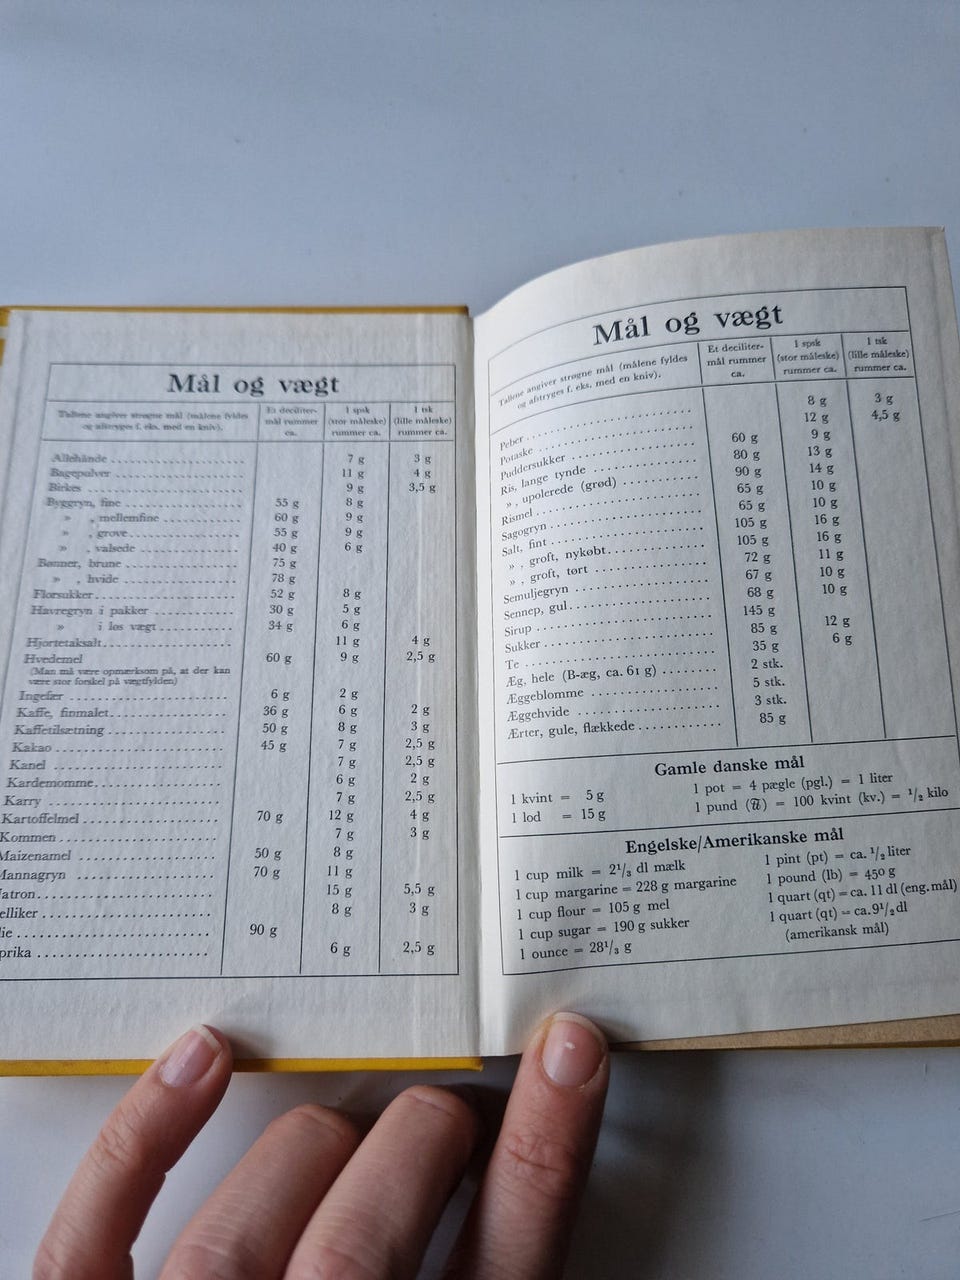 Mål og vægt
Tallene angiver strøgne mål (målene fyldes
og afstryges f. eks. med en kniv).
Et deciliter-
mål rummer
ca.
1 spsk
(stor måleske)
rummer ca.
1 tsk
(lille måleske)
rummer ca.
Allehånde 7 g 3 g
Bagepulver 11 g 4 g
Birkes 9 g 3,5 g
Byggryn, fine 55 g 8 g
» , mellemfine 60 g 9 g
» , grove 55 g 9 g
» , valsede 40 g 6 g
Bønner, brune 75 g
» , hvide 78 g
Florsukker 52 g 8 g
Havregryn i pakker 30 g 5 g
» i løs vægt 34 g 6 g
Hjortetaksalt 11 g 4 g
Hvedemel 60 g 9 g 2,5 g
(Man må være opmærksom på, at der kan
være stor forskel på vægtfylden)
Ingefær 6 g 2 g
Kaffe, finmalet 36 g 6 g 2 g
Kaffetilsætning 50 g 8 g 3 g
Kakao 45 g 7 g 2,5 g
Kanel 7 g 2,5 g
Kardemomme 6 g 2 g
Karry 7 g 2,5 g
Kartoffelmel 70 g 12 g 4 g
Kommen 7 g 3 g
Maizenamel 50 g 8 g
Mannagryn 70 g 11 g
atron 15 g 5,5 g
elliker 8 g 3 g
ie 90 g
prika 6 g 2,5 g
Mål og vægt
Tallene angiver strøgne mål (målene fyldes
og afstryges f. eks. med en kniv).
Et deciliter-
mål rummer
ca.
1 spsk
(stor måleske)
rummer ca.
1 tsk
(lille måleske)
rummer ca.
Peber 8 g 3 g
Potaske 12 g 4,5 g
Puddersukker 60 g 9 g
Ris, lange tynde 80 g 13 g
» , upolerede (grød) 90 g 14 g
Rismel 65 g 10 g
Sagogryn 65 g 10 g
Salt, fint 105 g 16 g
» , groft, nykøbt 105 g 16 g
» , groft, tørt 72 g 11 g
Semuljegryn 67 g 10 g
Sennep, gul 68 g 10 g
Sirup 145 g
Sukker 85 g 12 g
Te 35 g 6 g
Æg, hele (B-æg, ca. 61 g) 2 stk.
Æggeblomme 5 stk.
Æggehvide 3 stk.
Ærter, gule, flækkede 85 g
Gamle danske mål
1 kvint = 5 g
1 lod = 15 g
1 pot = 4 pægle (pgl.) = 1 liter
1 pund (℔) = 100 kvint (kv.) = 1/2 kilo
Engelske/Amerikanske mål
1 cup milk = 2 1/3 dl mælk
1 cup margarine = 228 g margarine
1 cup flour = 105 g mel
1 cup sugar = 190 g sukker
1 ounce = 28 1/3 g
1 pint (pt) = ca. 1/2 liter
1 pound (lb) = 450 g
1 quart (qt) = ca. 11 dl (eng. mål)
1 quart (qt) = ca. 9 1/2 dl
(amerikansk mål)